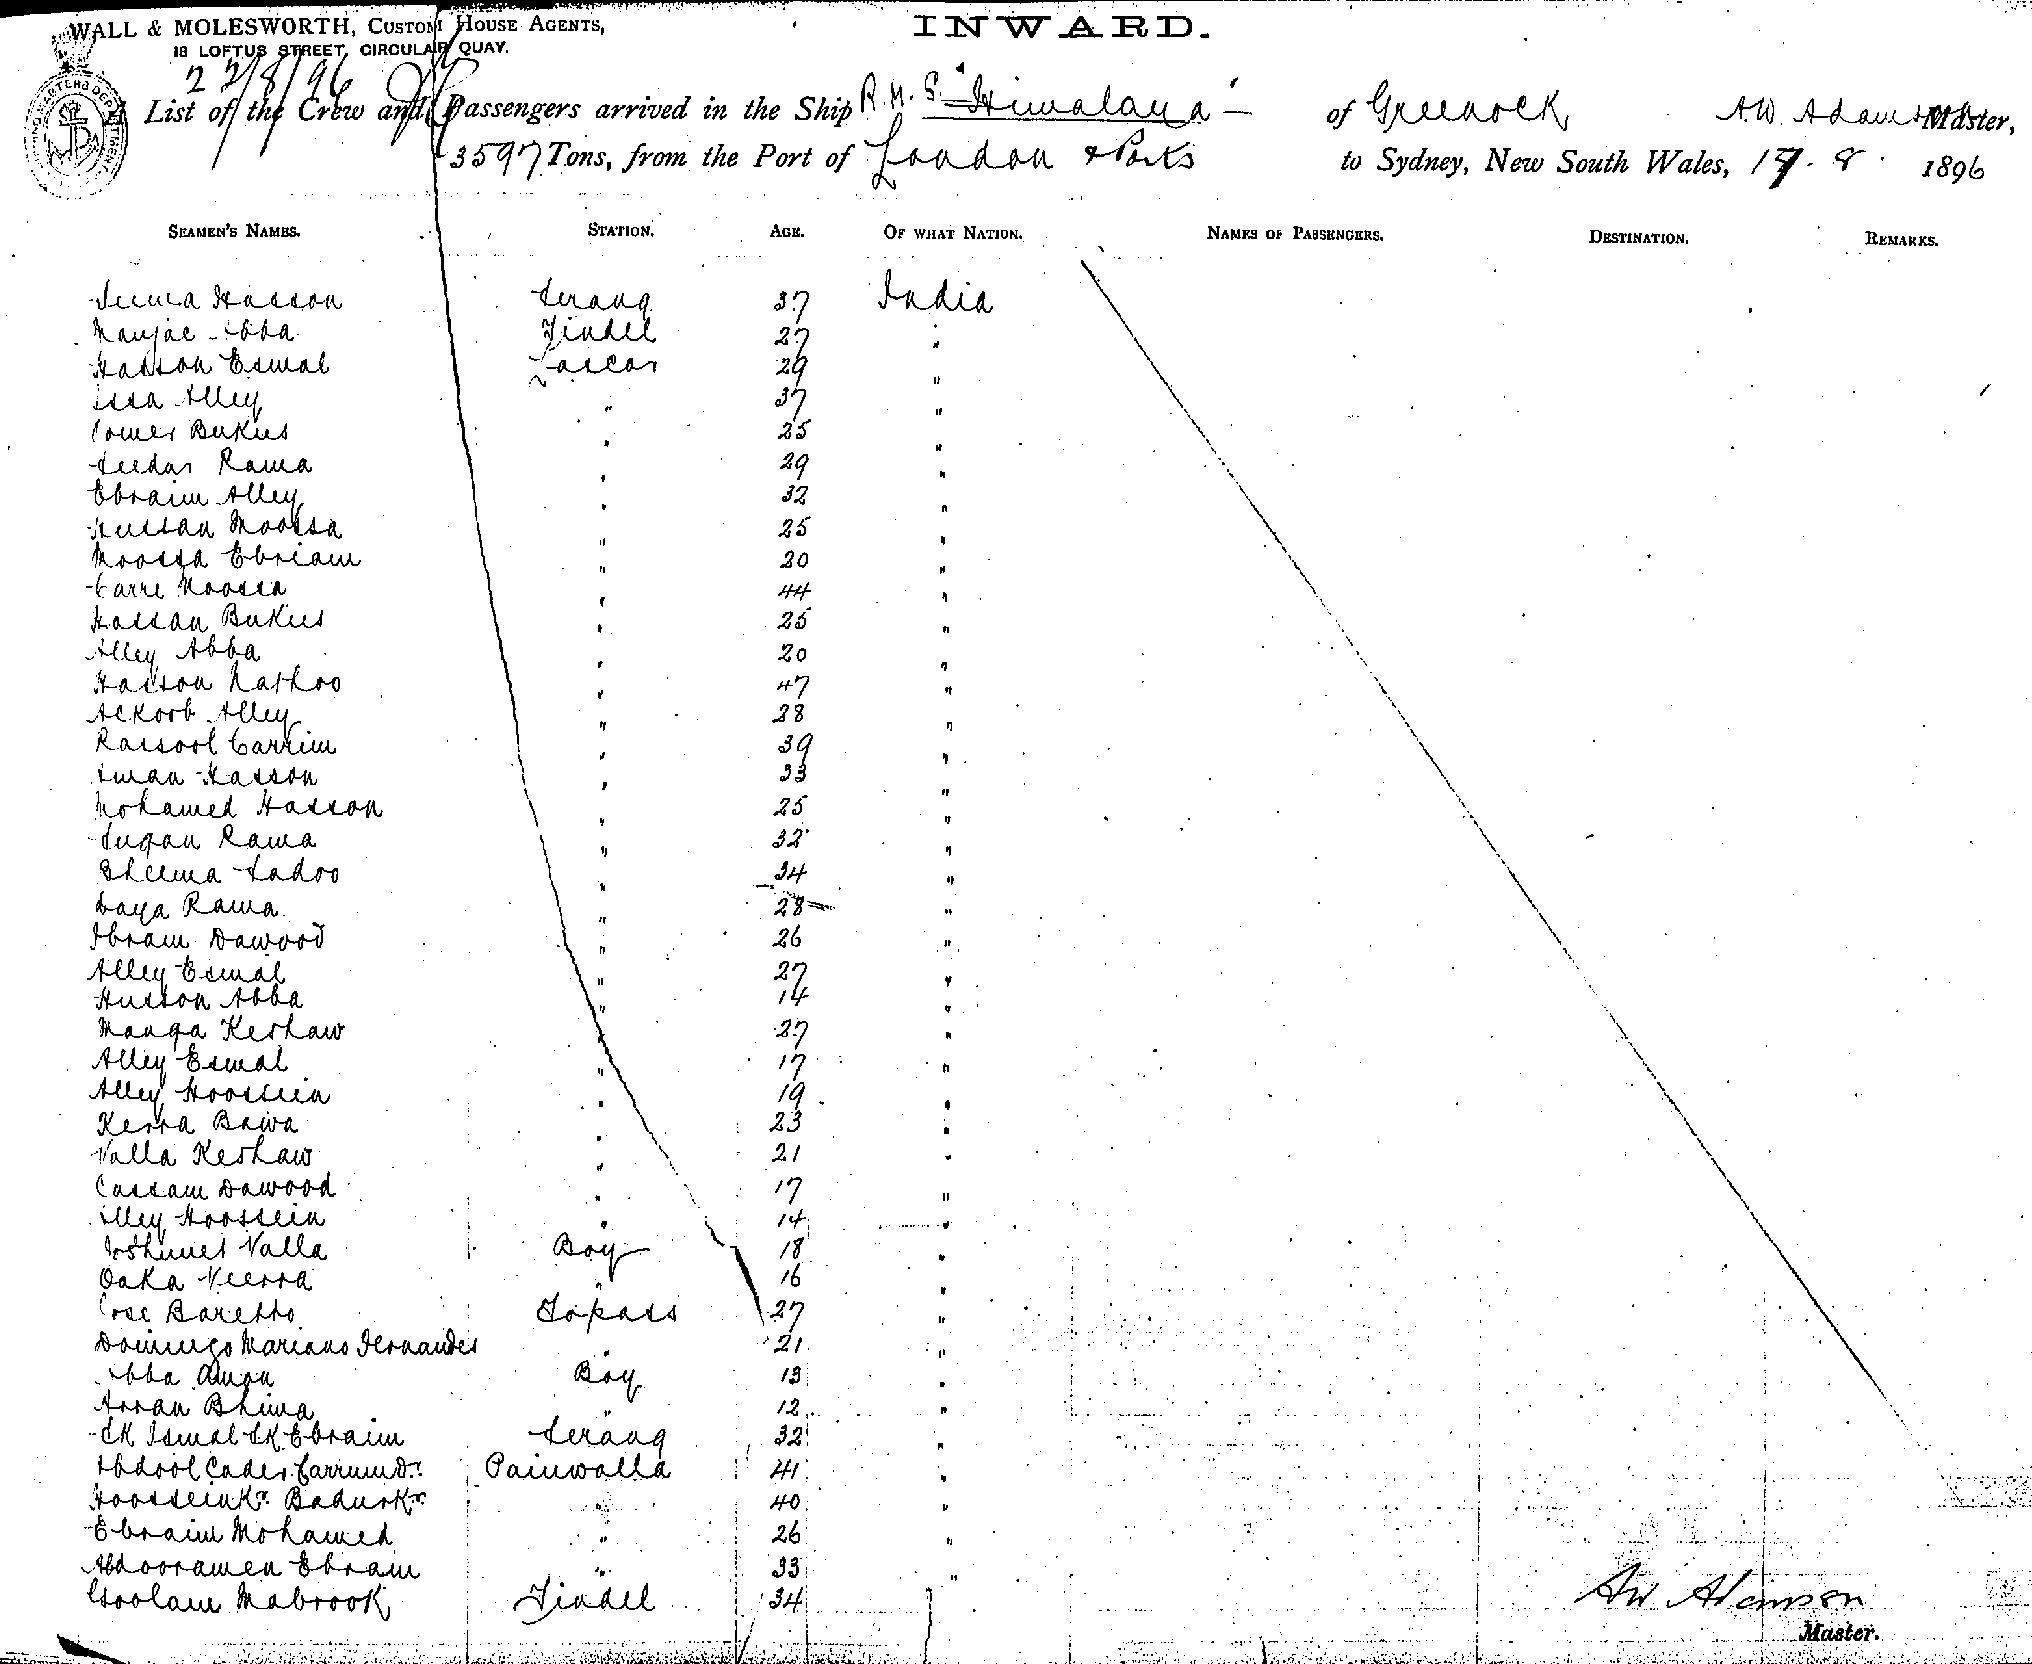 WALL & MOLESWORTH, CUSTOM HOUSE AGENTS,
18 LOFTUS STREET, CIRCULAR QUAY.
INWARD.
22/8/96
A List of the Crew and Passengers arrived in the Ship R.M.S. "Himalaya" of Greenock A.W. Adamson Master,
3597 Tons, from the Port of London & Ports to Sydney, New South Wales, 17. 8. 1896
SEAMEN'S NAMES. STATION. AGE. OF WHAT NATION. NAMES OF PASSENGERS. DESTINATION. REMARKS.
Hasson Serang 37 India
Abba Tindel 27 "
Hasson Esmal Lascar 29 "
Issa Alley " 37 "
Bukus " 25 "
Rama " 29 "
Ebraim Alley " 32 "
Hussan Moossa " 25 "
Moossa Ebriam " 20 "
Carre Moossa " 44 "
Hassan Bukus " 25 "
Alley Abba " 20 "
Hasson Nathoo " 47 "
Ackoob Alley " 28 "
Rassool Carrim " 39 "
Hasson " 33 "
Mohamed Hasson " 25 "
Rama " 32 "
Bheema Sadoo " 34 "
Daya Rama " 28 "
Ibram Dawood " 26 "
Alley Esmal " 27 "
Husson Abba " 14 "
Manga Keshaw " 27 "
Alley Esmal " 17 "
Alley Hoossein " 19 "
Kerra Bawa " 23 "
Valla Keshaw " 21 "
Cassam Dawood " 17 "
Alley Hoossein " 14 "
Valla Boy 18 "
Veerra " 16 "
Jose Baretto Topass 27 "
Domingo Mariano Fernandes " 21 "
Abba Amon Boy 13 "
Bhima " 12 "
SK Ismal SK Ebraim Serang 32 "
Abdool Cader Carrum Dn. Painwalla 41 "
Hoossein Kn. Badur Kn. " 40 "
Ebraim Mohamed " 26 "
Abdooramen Ebraim " 33 "
Goolam Mabrook Tindel 34
AW Adamson
Master.